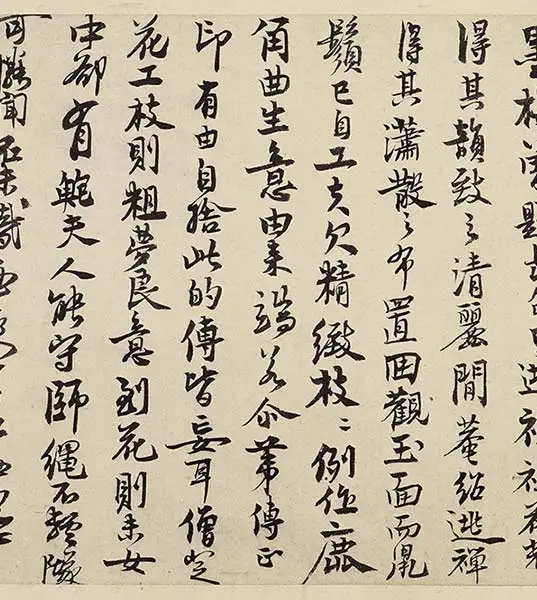 得其韻致之清麗閒菴紹逃禪
得其瀟散之布置回觀玉面而鼠
鬚已自工夫欠精緻枝〻例作鹿
角曲生意由来端若尒苐傳正
印有由自捨此的傳皆妄耳僧定
花工枝則粗夢良意到花則未女
中却有鮑夫人能守師繩不輕墜
可憐聞